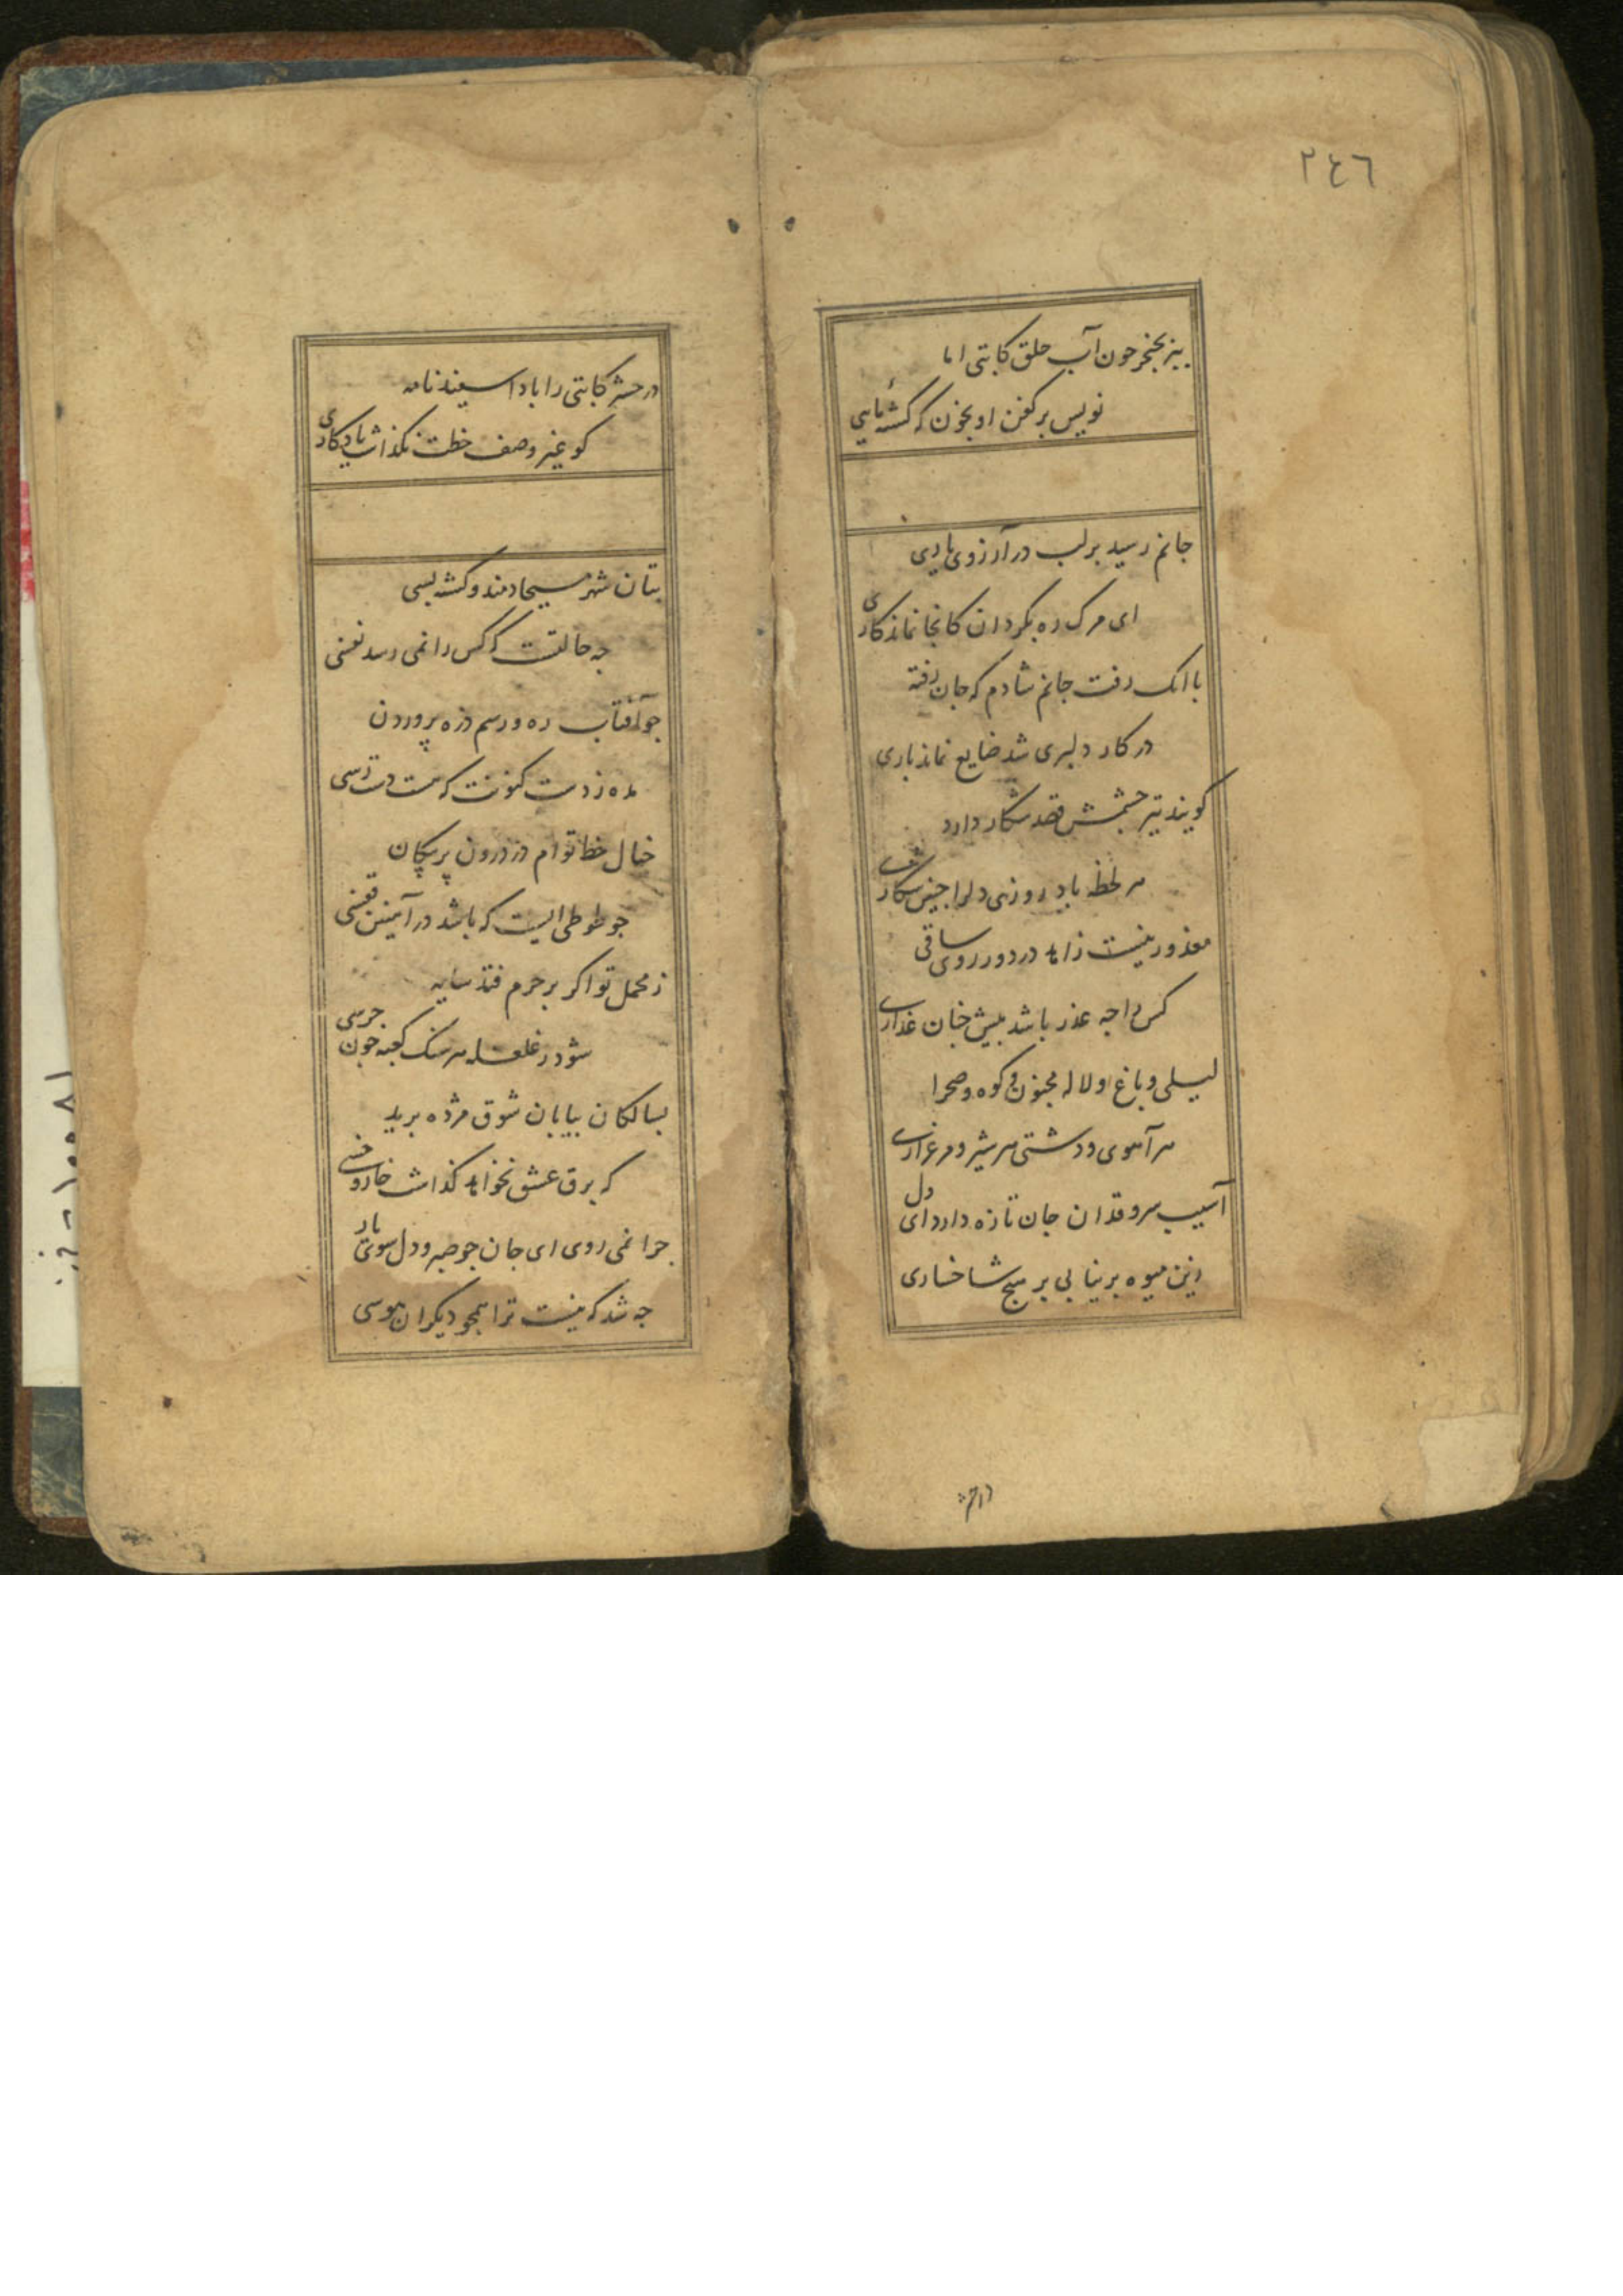 ٢٤٦
ببز بخنجر چون آب حلق کاتبی اما
نویس بر کفن او بخون که کشتهٔ مایی
جانم رسید بر لب در آرزوی یاری
ای مرک ره بکردان کانجا نماند کاری
با انک رفت جانم شادم که جان رفته
در کار دلبری شد ضایع نماند باری
کویند تیر چشمش قصد شکار دارد
هر لحظه یا رب روزی دلرا چنین شکاری
معذور نیست زاهد در دور روی ساقی
کس را چه عذر باشد پیش چنان عذاری
لیلی و باغ و لاله مجنون و کوه و صحرا
هر آهوی و دشتی هر شیر و مرغزاری
آسیب سرو قدان جان تازه دارد ای دل
زین میوه بر نیابی بر هیچ شاخساری
در حشر
در حشر کاتبی را بادا سفید نامه
کو غیر وصف خطت نکذاشت یادکاری
بتان شهر مسیحا دمند و کشته بسی
چه حالتست که کس را نمی رسد نفسی
چو آفتاب ره و رسم ذره پروردن
مده ز دست کنونت که هست دست رسی
خیال خط توام در درون پر پیکان
چو طوطی ایست که باشد در آهنین قفسی
ز محمل تو اکر بر حرم فتد سایه
شود ز غلغله هر سنک کعبه چون جرسی
بسالکان بیابان شوق مژده برید
که برق عشق نخواهد کذاشت خار و خسی
چرا نمی روی ای جان چو صبر و دل سوی یار
چه شد که نیست ترا همچو دیکران هوسی